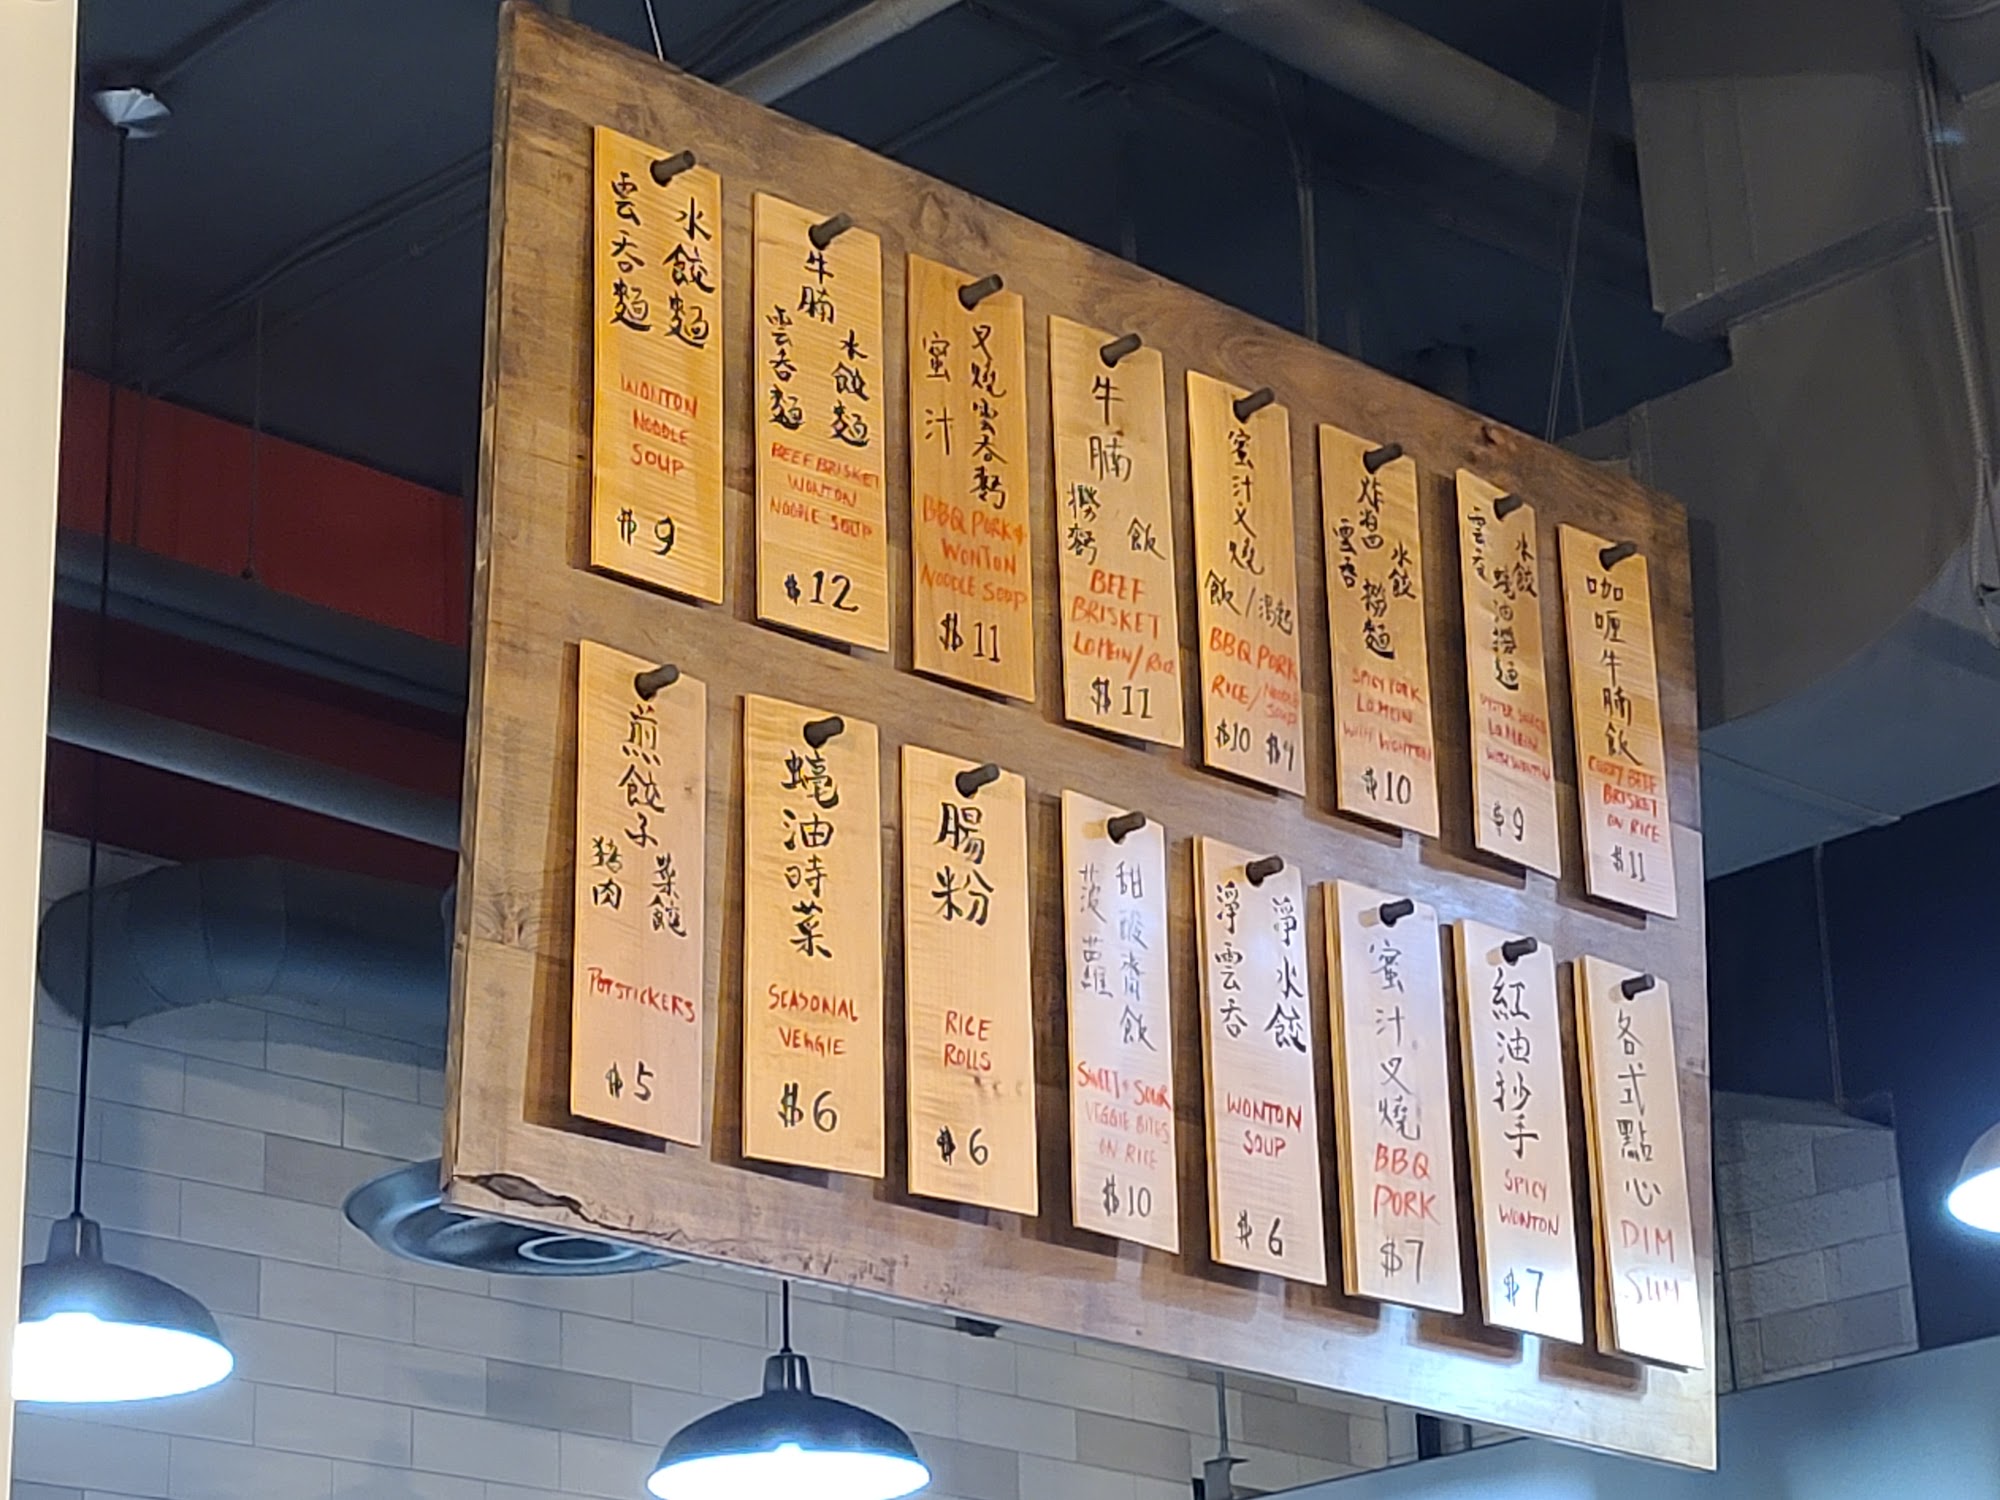 水餃麵
雲吞麵
WONTON
NOODLE
SOUP
$9
牛腩
水餃麵
雲吞麵
BEEF BRISKET
WONTON
NOODLE SOUP
$12
蜜汁
叉燒雲吞麪
BBQ PORK +
WONTON
NOODLE SOUP
$11
牛腩
撈麪 飯
BEEF
BRISKET
LO MEIN/RICE
$11
蜜汁叉燒
飯/湯麪
BBQ PORK
RICE/NOODLE SOUP
$10 $9
炸醬
水餃
雲吞
撈麵
SPICY PORK
LO MEIN
WITH WONTON
$10
水餃
雲吞
蠔油撈麵
OYSTER SAUCE
LO MEIN
WITH WONTON
$9
咖喱牛腩飯
CURRY BEEF
BRISKET
ON RICE
$11
煎餃子
菜餃
豬肉
POTSTICKERS
$5
蠔油時菜
SEASONAL
VEGGIE
$6
腸粉
RICE
ROLLS
$6
甜酸齋飯
菠蘿
SWEET + SOUR
VEGGIE BITES
ON RICE
$10
淨水餃
淨雲吞
WONTON
SOUP
$6
蜜汁叉燒
BBQ
PORK
$7
紅油抄手
SPICY
WONTON
$7
各式點心
DIM
SUM